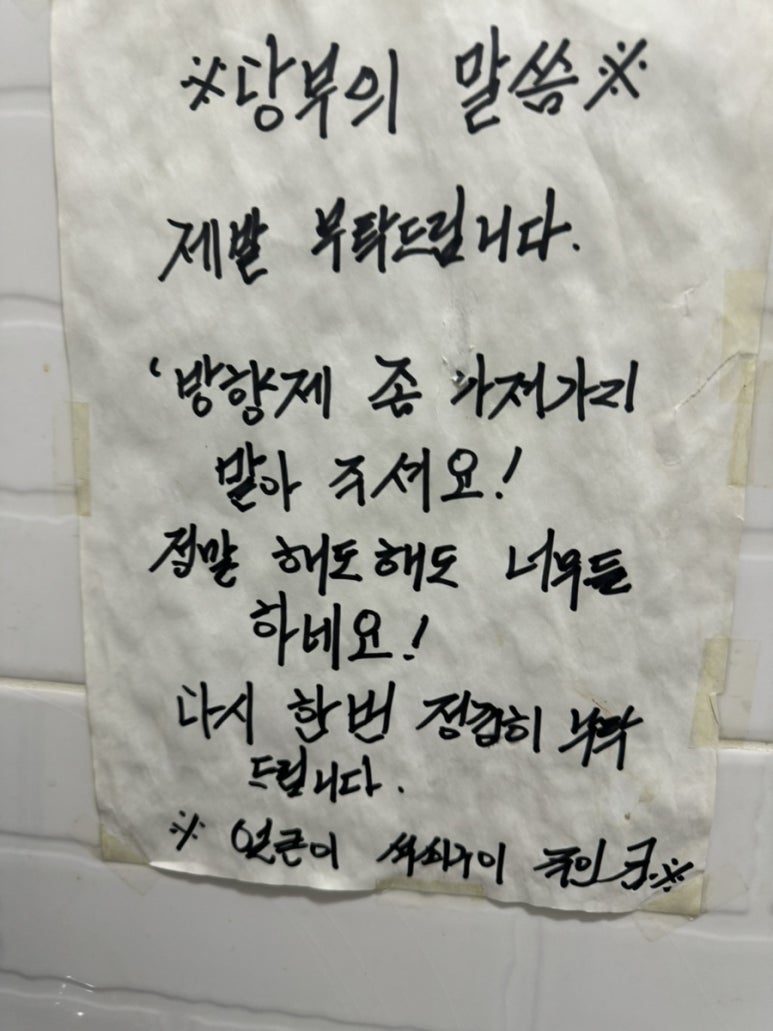 ※당부의 말씀※
제발 부탁드립니다.
'방향제 좀 가져가지
말아 주셔요!
정말 해도해도 너무들
하네요!
다시 한번 정중히 부탁
드립니다.
※ 얼큰이 주인 ※